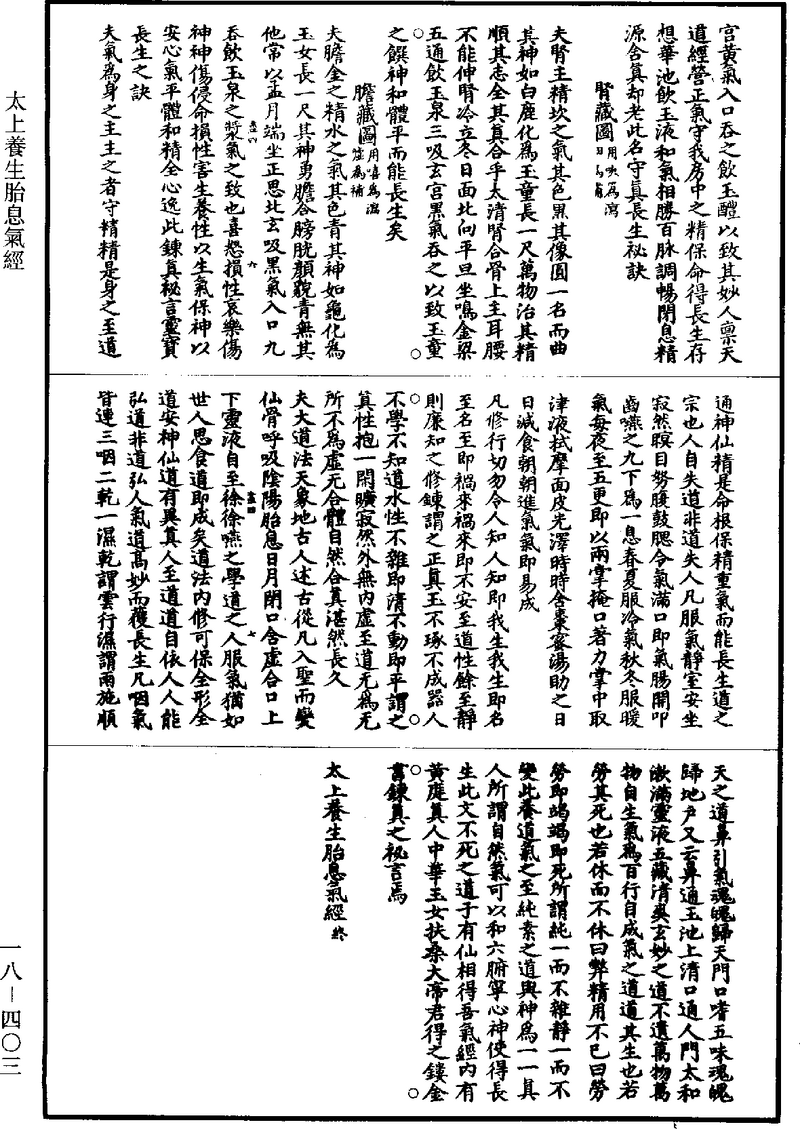 太上養生胎息氣經
一八—四〇三
宮黃氣入口吞之飲玉醴以致其妙人禀天
道經營正氣守我房中之精保命得長生存
想華池飲玉液和氣相勝百脉調暢閉息精
源含真却老此名守真長生祕訣
腎藏圖
夫腎主精坎之氣其色黑其像圓一名而曲
其神如白鹿化為玉童長一尺萬物治其精
順其志全其真合乎太清腎合骨上主耳腰
不能伸腎冷立冬日面北向平旦坐鳴金梁
五通飲玉泉三吸玄宮黑氣吞之以致玉童
之饌神和體平而能長生矣
膽藏圖 用嘻為瀉 噓為補
夫膽金之精水之氣其色青其神如龜化為
玉女長一尺其神勇膽合膀胱顏貌青無其
他常以孟月端坐正思北玄吸黑氣入口九
吞飲玉泉之漿氣之致也喜怒損性哀樂傷
神神傷侵命損性害生養性以生氣保神以
安心氣平體和精全心逸此鍊真祕言靈寶
長生之訣
夫氣為身之主主之者守精精是身之至道
通神仙精是命根保精重氣而能長生道之
宗也人自失道非道失人凡服氣靜室安坐
寂然瞑目努腹鼓腮令氣滿口即氣腸開叩
齒嚥之九下為一息春夏服冷氣秋冬服暖
氣每夜至五更即以兩掌掩口著力掌中取
津液拭摩面皮光澤時時含棗蜜湯助之日
日減食朝朝進氣氣即易成
凡修行切勿令人知人知即我生我生即名
至名至即禍來禍來即不安至道性餘至靜
則廉知之修鍊謂之正真玉不琢不成器人
不學不知道水性不雜即清不動即平謂之
真性抱一閑曠寂然外無內虛至道无為无
所不為虛无合體自然合真湛然長久
夫大道法天象地古人述古從凡入聖而變
仙骨呼吸陰陽胎息日月閉口含虛合口上
下靈液自至徐徐嚥之學道之人服氣猶如
世人思食道即成矣道法內修可保全形全
道安神仙道有異真人至道道自依人人能
弘道非道弘人氣道髙妙而獲長生凡咽氣
皆連三咽二乾一濕乾謂雲行濕謂雨施順
天之道鼻引氣魂魄歸天門口嗜五味魂魄
歸地戶又云鼻通玉池上清口通人門太和
漱滿靈液五藏清爽玄妙之道不遺萬物萬
物自生氣為百行自成氣之道道其生也若
勞其死也若休而不休曰弊精用不已曰勞
勞即竭竭即死所謂純一而不雜靜一而不
變此養道氣之至純素之道與神為一一真
人所謂自然氣可以和六腑寧心神使得長
生此文不死之道子有仙相得吾氣經內有
黃庭真人中華玉女扶桑大帝君得之鏤金
書鍊真之祕言焉
太上養生胎息氣經 終